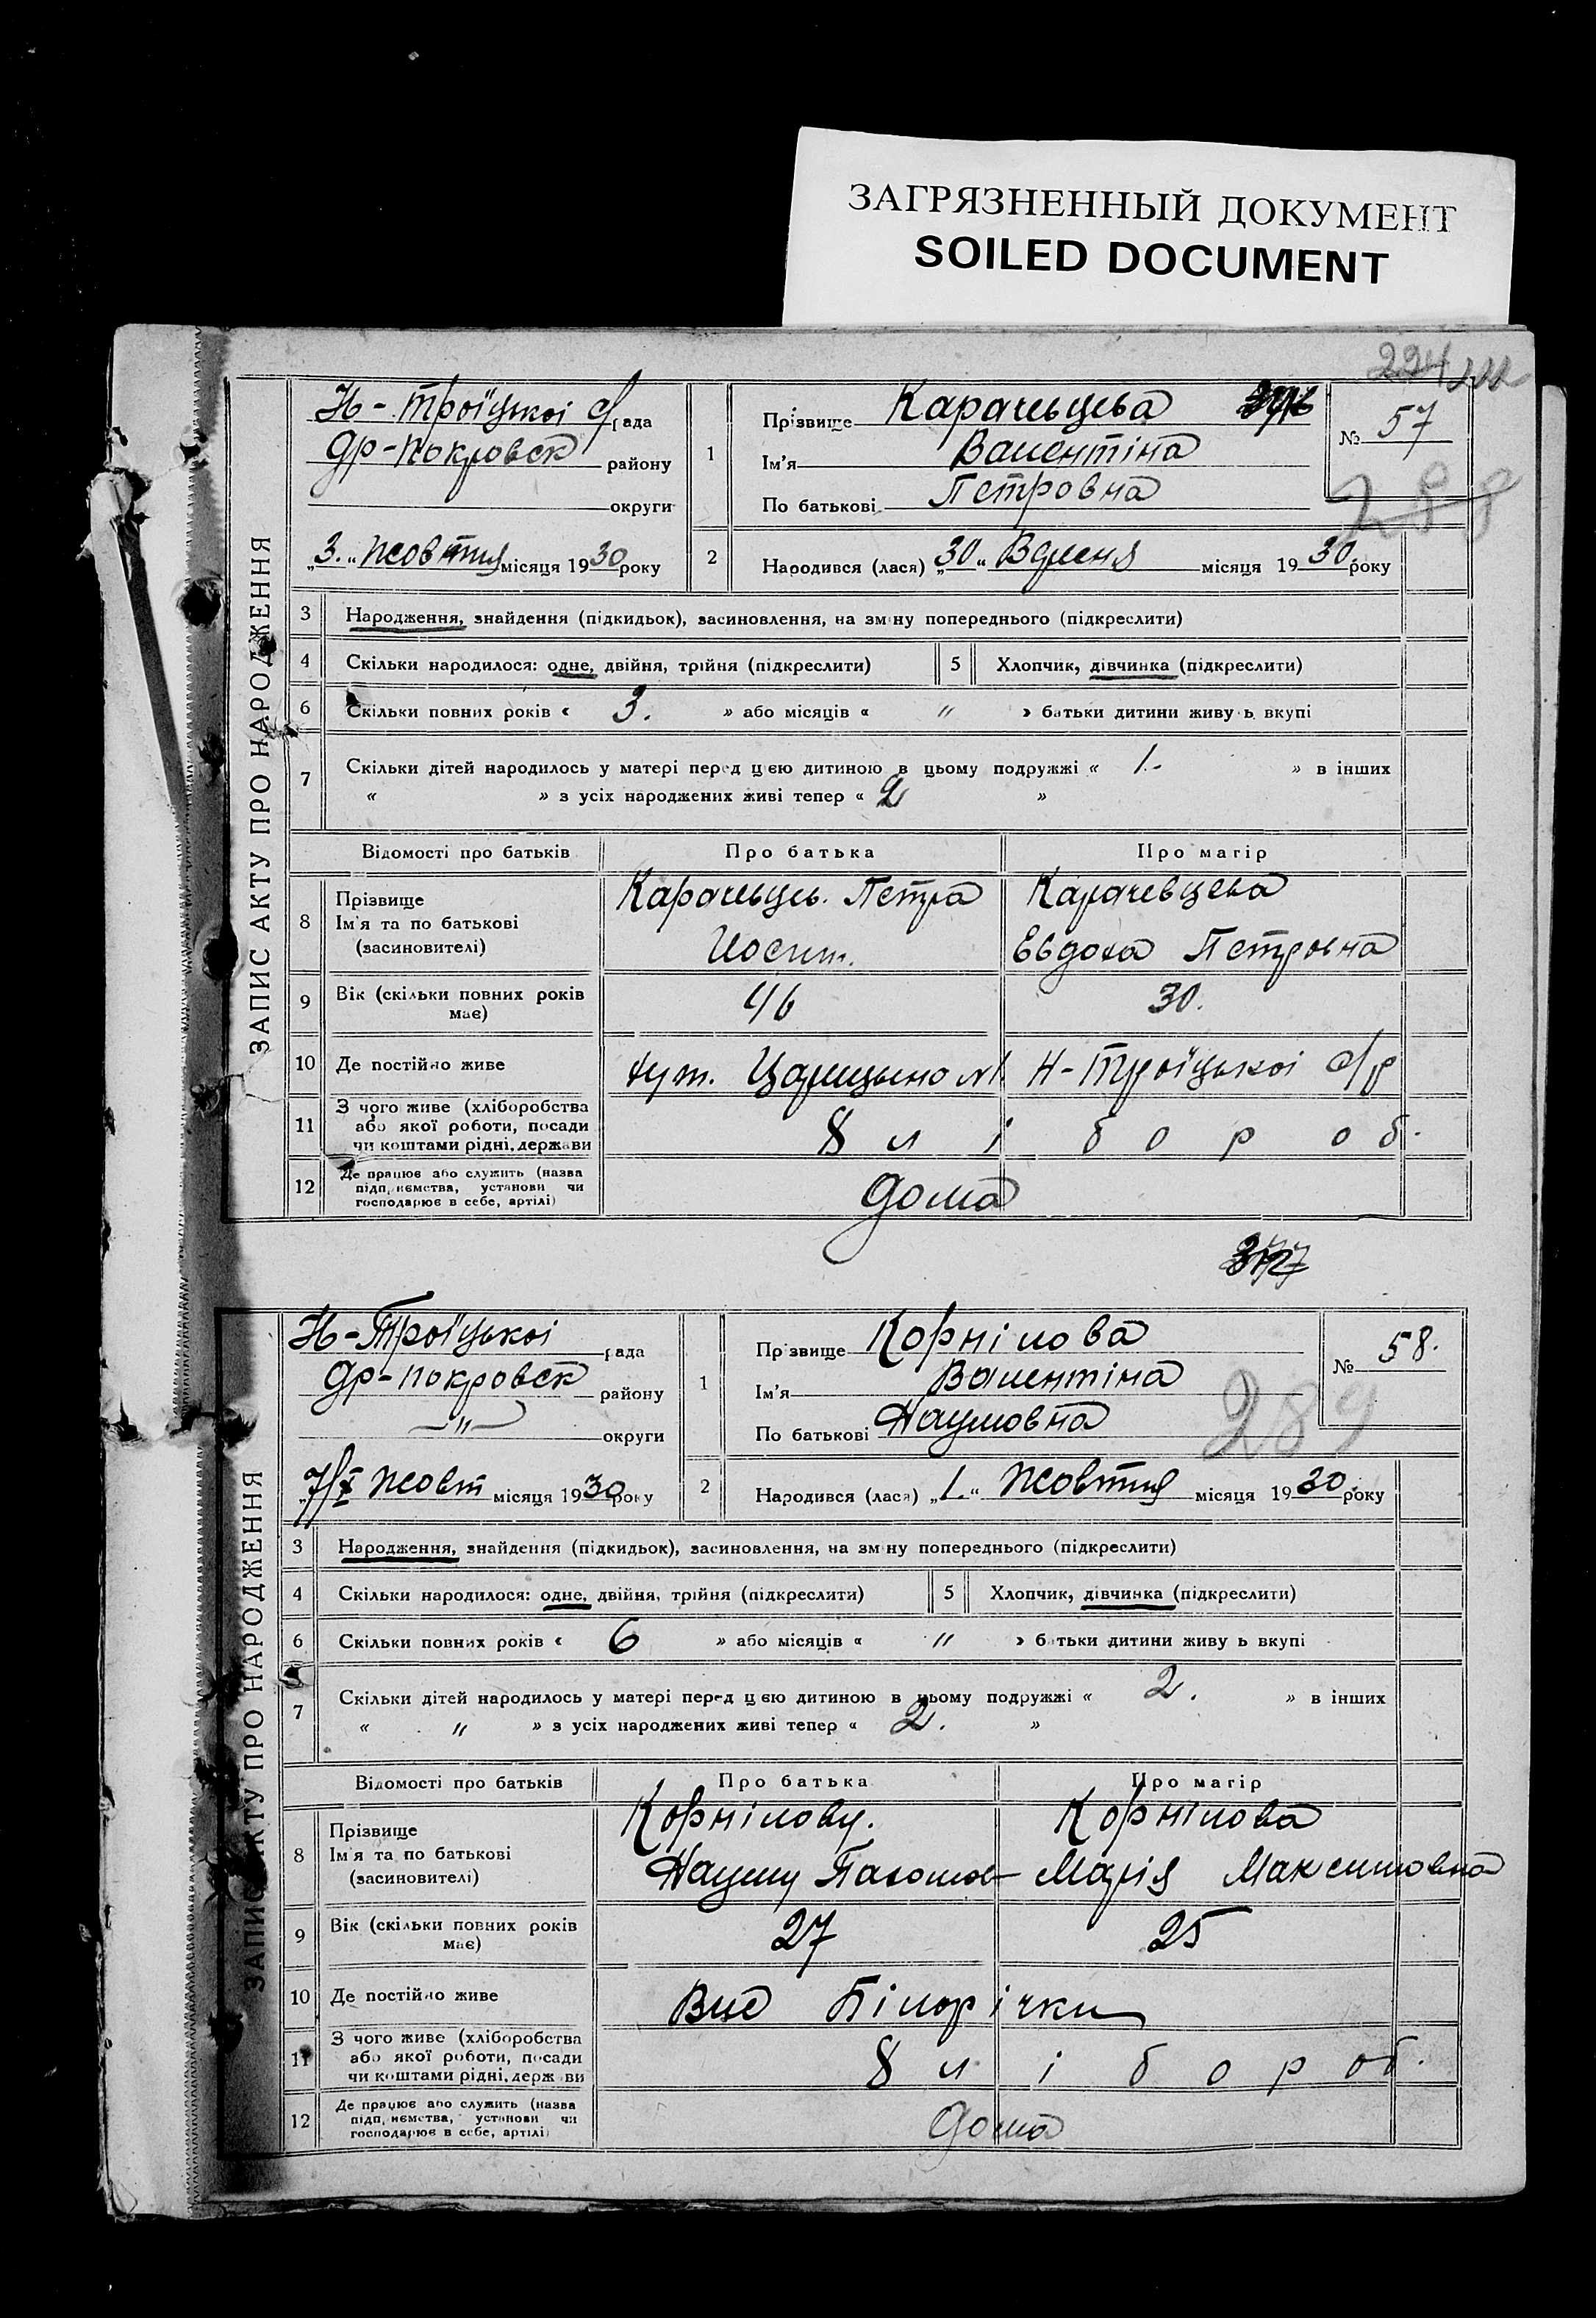 ЗАГРЯЗНЕННЫЙ ДОКУМЕНТ
SOILED DOCUMENT
224
ЗАПИС АКТУ ПРО НАРОДЖЕННЯ
Н-Троїцької с/рада
Др-Покровск району
округи
„3.“ Жовтня місяця 1930 року
1
Прізвище Карачевцева
Ім'я Валентіна
По батькові Петровна
№ 57
288
2
Народився (лася) „30“ Вересня місяця 1930 року
3 Народження, знайдення (підкидьок), засиновлення, на зміну попереднього (підкреслити)
4 Скільки народилося: одне, двійня, трійня (підкреслити) 5 Хлопчик, дівчинка (підкреслити)
6 Скільки повних років « 3. » або місяців « " » батьки дитини живуть вкупі
7 Скільки дітей народилось у матері перед цією дитиною в цьому подружжі « 1. » в інших
« » з усіх народжених живі тепер « 2 »
Відомості про батьків Про батька Про матір
8 Прізвище
Ім'я та по батькові
(засиновителі)
Карачевцев. Петра
Иосип.
Карачевцева
Евдоха Петровна
9 Вік (скільки повних років має) 46 30.
10 Де постійно живе хут. Царицыно №1. Н-Троїцької с/р
11 З чого живе (хліборобства
або якої роботи, посади
чи коштами рідні, держави
хлібороб.
12 Де працює або служить (назва
підприємства, установи чи
господарює в себе, артілі)
дома
377
ЗАПИС АКТУ ПРО НАРОДЖЕННЯ
Н-Троїцької рада
Др-Покровск району
" округи
„7/X Жовт місяця 1930 року
1
Прізвище Корнілова
Ім'я Валентіна
По батькові Наумовна
№ 58.
289
2
Народився (лася) „1.“ Жовтня місяця 1930 року
3 Народження, знайдення (підкидьок), засиновлення, на зміну попереднього (підкреслити)
4 Скільки народилося: одне, двійня, трійня (підкреслити) 5 Хлопчик, дівчинка (підкреслити)
6 Скільки повних років « 6 » або місяців « " » батьки дитини живуть вкупі
7 Скільки дітей народилось у матері перед цією дитиною в цьому подружжі « 2. » в інших
« " » з усіх народжених живі тепер « 2. »
Відомості про батьків Про батька Про матір
8 Прізвище
Ім'я та по батькові
(засиновителі)
Корнілову.
Науму
Корнілова
Марія Максимовна
9 Вік (скільки повних років має) 27 25
10 Де постійно живе Білорічки
11 З чого живе (хліборобства
або якої роботи, посади
чи коштами рідні, держави
хлібороб.
12 Де працює або служить (назва
підприємства, установи чи
господарює в себе, артілі)
дома